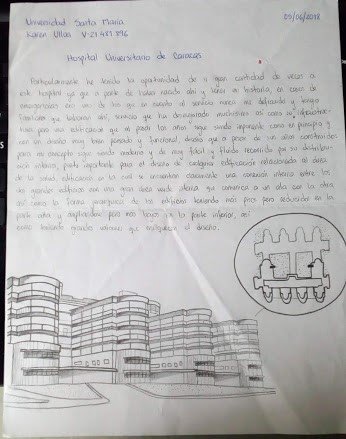 Universidad Santa María
Karen Villas V-21.481.896
09/06/2018
Hospital Universitario de Caracas
Particularmente he tenido la oportunidad de ir gran cantidad de veces a
este hospital ya que a parte de haber nacido ahí y tener mi historia, en casos de
emergencias era uno de los que en cuanto al servicio nunca me defraudó y tengo
familiares que laboran ahí, servicio que ha desmejorado muchísimo así como su infraestruc-
tura pero una edificación que al pasar los años sigue siendo imponente como en principio y
con un diseño muy bien pensado y funcional, diseño que a pesar de un años construidos
para mi concepto sigue siendo moderno y de muy fácil y fluido recorrido por su distribu-
ción interna, punto importante para el diseño de cualquier edificación relacionada al área
de la salud, edificación en la cual se encuentran claramente una conexión interna entre los
dos grandes edificios con una gran área verde interna que comunica a un ala con la otra
así como la forma jerárquica de los edificios teniendo más piso pero reducción en la
parte alta y ampliándose pero más bajos en la parte inferior, así
como teniendo grandes volúmenes que enriquecen el diseño.